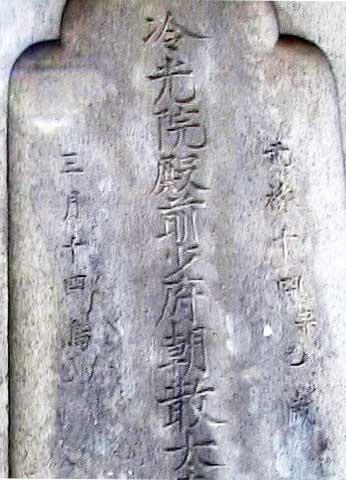 元禄十四辛巳
冷光院殿前少府朝散大
三月十四